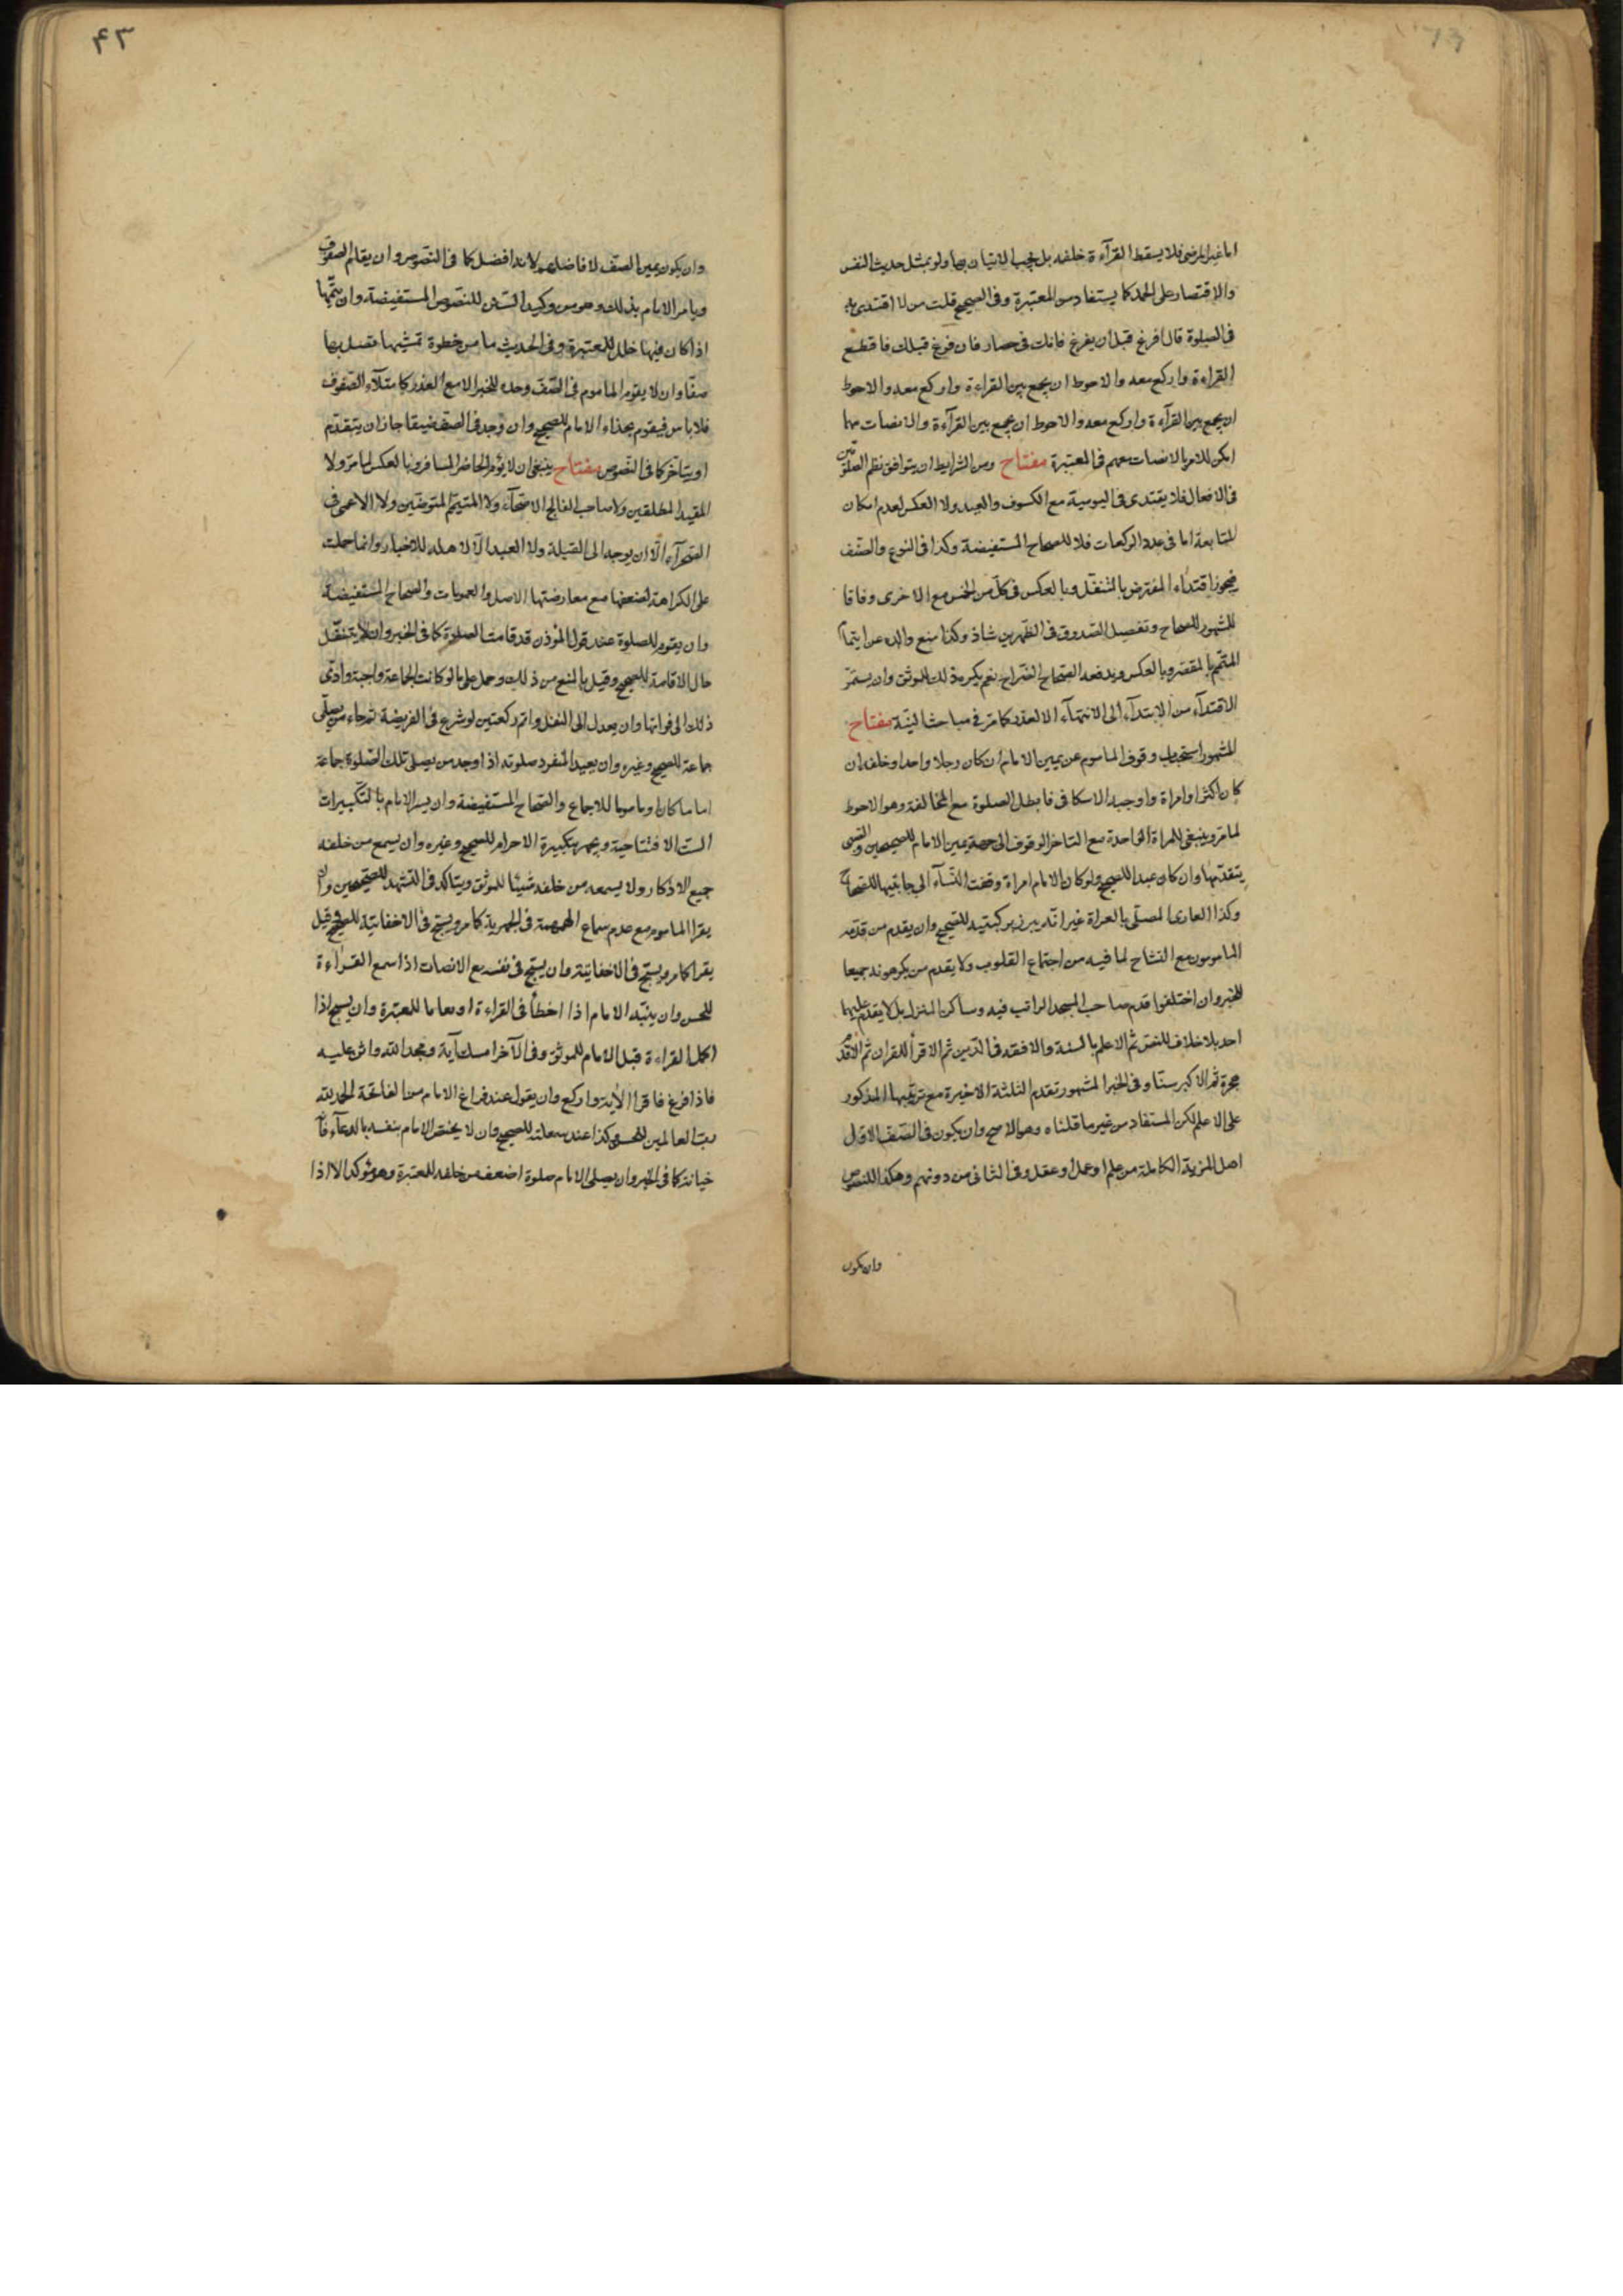 اما غير المرضى فلا يسقط القرآءة خلفه بل يجب الاتيان بها ولو بمثل حديث النفس
والاقتصار على الحمد كما يستفاد من المعتبرة وفى الصحيح قلت من لا اقتدى به
فى الصلوة قال افرغ قبل ان يفرغ فانك فى حصار فان فرغ قبلك فاقطع
القراءة واركع معه والاحوط ان يجمع بين القراءة واركع معه والاحوط
ان يجمع بين القرآءة واركع معه والاحوط ان يجمع بين القرآءة والانصات مهما
امكن للامر بالانصات معهم فى المعتبرة مفتاح ومن الشرايط ان يتوافق نظم الصلوتين
فى الافعال فلا يقتدى فى اليومية مع الكسوف والعيد ولا العكس لعدم امكان
المتابعة اما فى عدد الركعات فلا للصحاح المستفيضة وكذا فى النوع والصنف
فيجوز اقتداء المفترض بالمتنفل وبالعكس فى كل من الخمس مع الاخرى وفاقا
للمشهور للصحاح وتفصيل الصدوق فى الظهرين شاذ وكذا منع والده عن ايتمام
المتمم بالمقصر وبالعكس ويدفعه الصحاح الصراح نعم يكره ذلك للموثق وان يستمر
الاقتدآء من الابتدآء الى الانتهآء الا لعذر كما مر فى مباحث النية مفتاح
المشهور استحباب وقوف الماموم عن يمين الامام ان كان رجلا واحدا وخلفه ان
كان اكثر او امراة واوجبه الاسكافى فابطل الصلوة مع المخالفة وهو الاحوط
لما مر وينبغى للمراة الواحدة مع التاخر الوقوف الى جهة يمين الامام للصحيحين والصبى
يتقدمها وان كان عبدا للصحيح ولو كان الامام امراة وقفت النسآء الى جانبيها للصحاح
وكذا العارى المصلى بالعراة غير انه يبرز بركبتيه للصحيح وان يقدم من قدمه
المامومون مع التشاح لما فيه من اجتماع القلوب ولا يقدم من يكرهونه جميعا
للخبر وان اختلفوا قدم صاحب المسجد الراتب فيه وساكن المنزل بل لا يتقدم عليهما
احد بلا خلاف للنص ثم الاعلم بالسنة والافقه فى الدين ثم الاقرأ للقران ثم الاقدم
هجرة ثم الاكبر سنا وفى الخبر المشهور تقدم الثلثة الاخيرة مع ترتيبها المذكور
على الاعلم لكن المستفاد من غير ما قلناه وهو الاصح وان يكون فى الصف الاول
اهل المزية الكاملة من علم او عمل او عقل وفى الثانى من دونهم وهكذا للنصوص
وان يكون
٤٣
وان يكون يمين الصف لافاضلهم لانه افضل كما فى النصوص وان يقام الصفوف
ويامر الامام بذلك وهو من وكيد السنن للنصوص المستفيضة وان يتمها
اذا كان فيها خلل للمعتبرة وفى الحديث ما من خطوة تمشيها تصل بها
صفا وان لا يقوم الماموم فى الصف وحده للخبر الا مع العذر كامتلآء الصفوف
فلا باس فيقوم بحذاء الامام للصحيح وان وجد فى الصف ضيقا جاز ان يتقدم
او يتاخر كما فى النصوص مفتاح ينبغى ان لا يؤم الحاضر المسافر وبالعكس لما مر ولا
المقيد المطلقين ولا صاحب الفالج الاصحآء ولا المتيمم المتوضين ولا الاعمى فى
الصحرآء الا ان يوجه الى القبلة ولا العبد الا لاهله للاخبار وانما حملت
على الكراهة لضعفها مع معارضتها الاصل والعمومات والصحاح المستفيضة
وان يقوم للصلوة عند قول المؤذن قد قامت الصلوة كما فى الخبر وان لا يتنفل
حال الاقامة للصحيح وقيل بالمنع من ذلك وحمل على ما لو كانت الجماعة واجبة وادى
ذلك الى فواتها وان يعدل الى النفل واتم ركعتين لو شرع فى الفريضة ثم جاء من يصلى
جماعة للصحيح وغيره وان يعيد المنفرد صلوته اذا وجد من يصلى تلك الصلوة جماعة
اماما كان او ماموما للاجماع والصحاح المستفيضة وان يسر الامام بالتكبيرات
الست الافتتاحية ويجهر بتكبيرة الاحرام للصحيح وغيره وان يسمع من خلفه
جميع الاذكار ولا يسمعه من خلفه شيئا للموثق ويتاكد فى التشهد للصحيحين وان
يقرا الماموم مع عدم سماع الهمهمة فى الجهرية كما مر ويسبح فى الاخفاتية للصحيح وقيل
يقرا كما مر ويسبح فى الاخفاتية وان يسبح فى نفسه مع الانصات اذا سمع القراءة
للحسن وان ينبه الامام اذا اخطأ فى القراءة او معاما للمعتبرة وان يسبح اذا
اكمل القراءة قبل الامام للموثق وفى الآخر امسك آية ومجد الله واثن عليه
فاذا فرغ فاقرا الآية واركع وان يقول عند فراغ الامام من الفاتحة الحمد لله
رب العالمين للحسن وكذا عند سمعلته للصحيح وان لا يخص الامام بنفسه بالدعآء فانه
خيانة كما فى الخبر وان يصلى الامام صلوة اضعف من خلفه للمعتبرة وهو مؤكد الا اذا